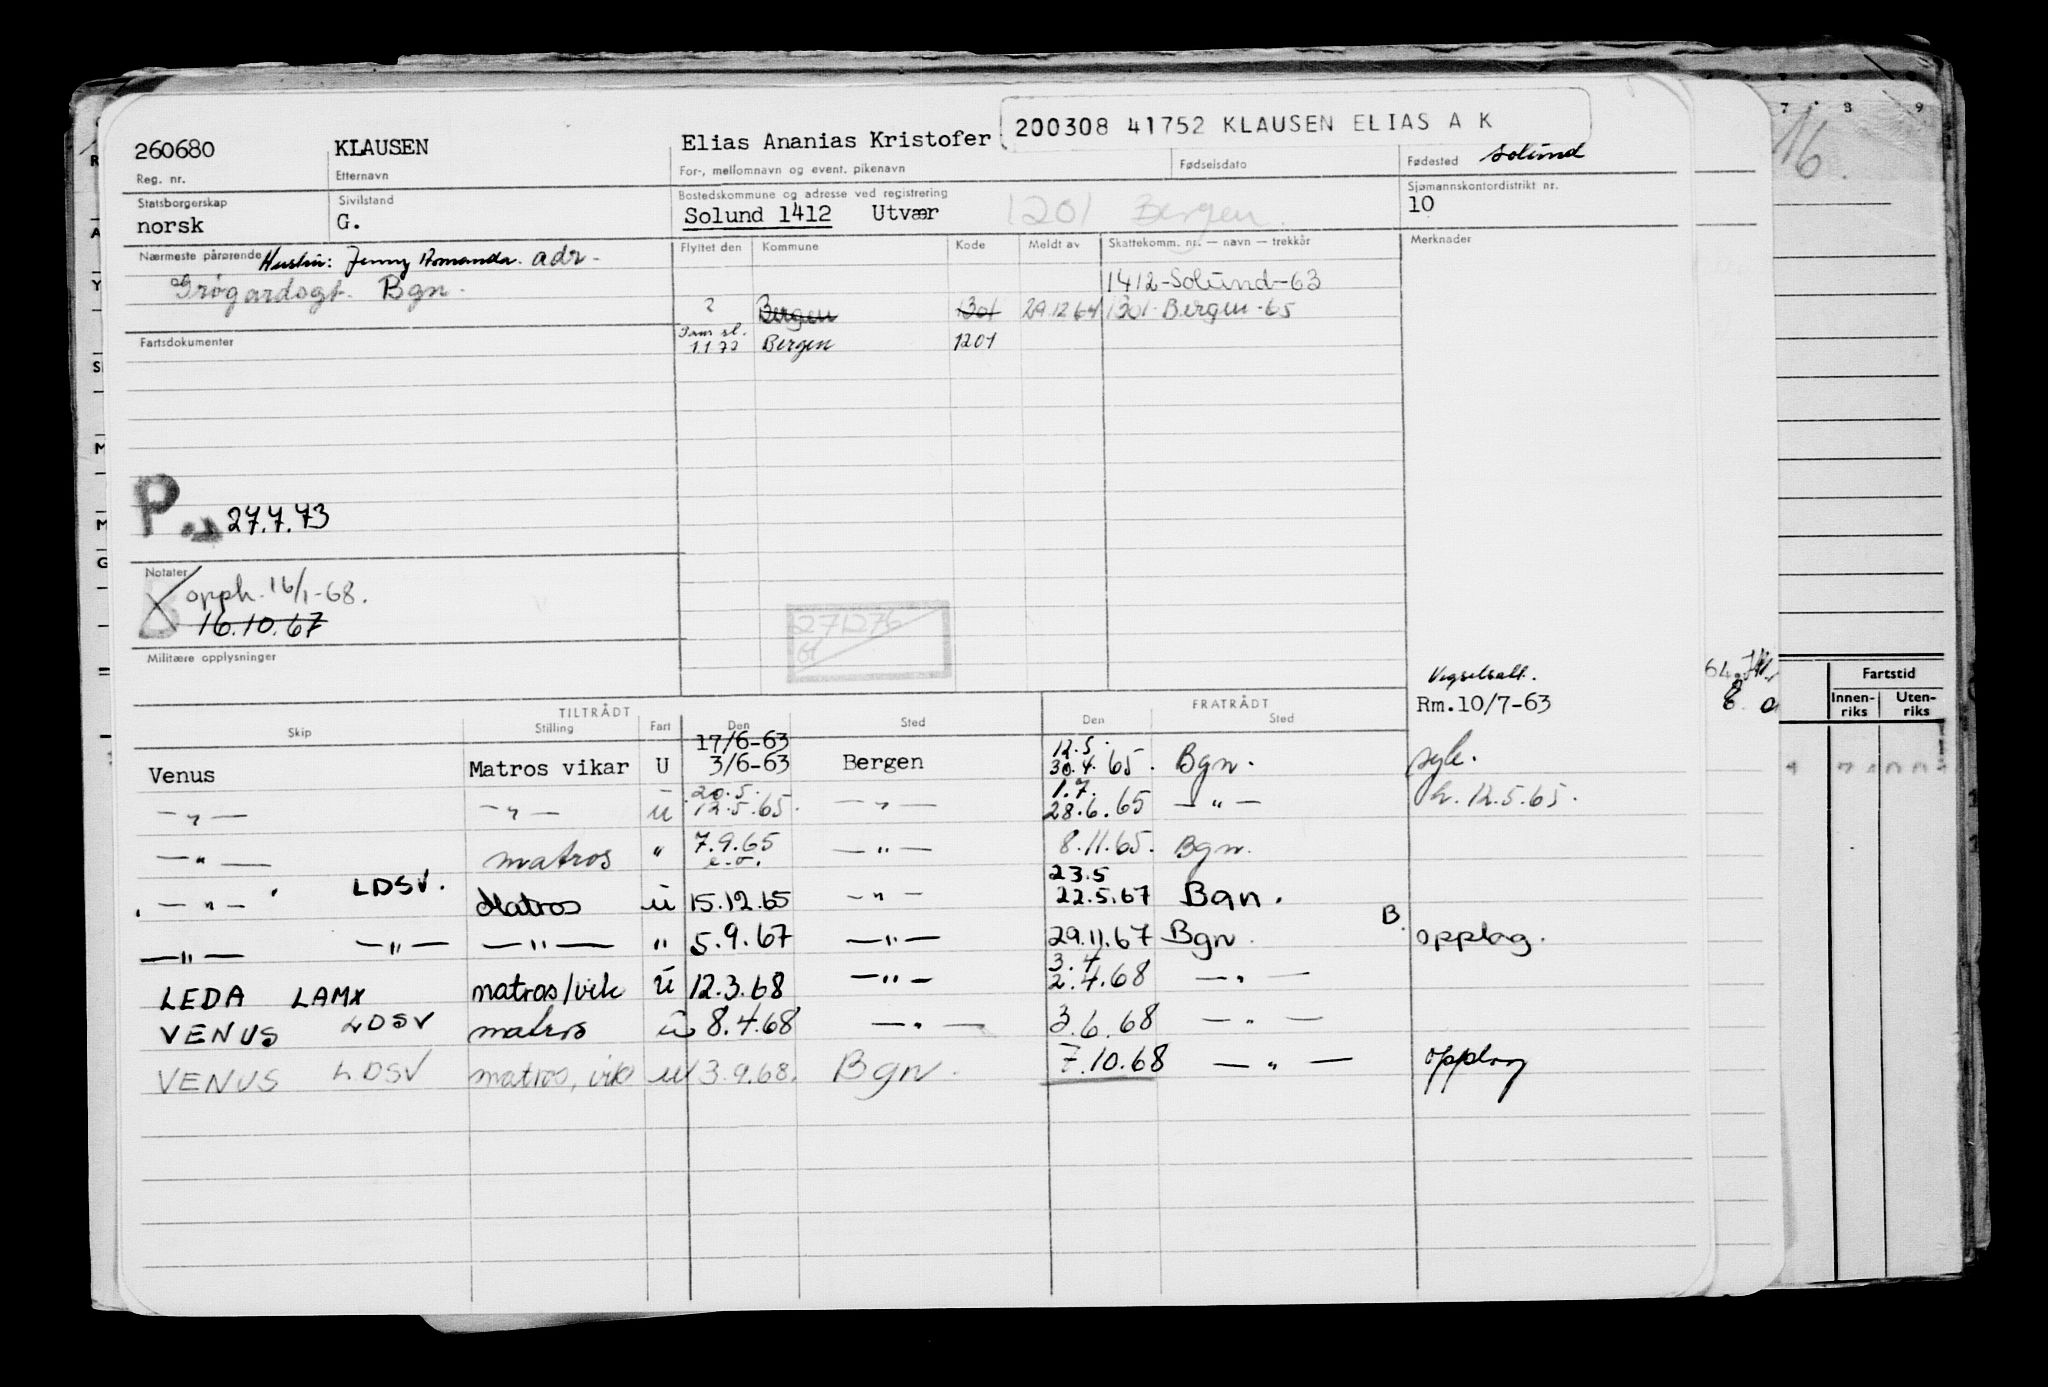 200308 41752 KLAUSEN ELIAS A K
260680 KLAUSEN Elias Ananias Kristofer
Reg. nr. Etternavn For-, mellomnavn og event. pikenavn Fødselsdato Fødested Solund
Statsborgerskap Sivilstand Bostedskommune og adresse ved registrering Sjømannskontordistrikt nr.
norsk G. Solund 1412 Utvær 1201 Bergen 10
Nærmeste pårørende Hustru: Jenny Romanda. adr- Flyttet den Kommune Kode Meldt av Skattekomm. nr. — navn — trekkår Merknader
Bgn.
1412-Solund-63
? Bergen 1301 29.12.64 1301-Bergen-65
Fartsdokumenter 1.1.72 Bergen 1201
P. 27.7.73
Notater
opph. 16/1-68.
16.10.67
271276
Militære opplysninger
Rm.10/7-63
TILTRÅDT FRATRÅDT
Skip Stilling Fart Den Sted Den Sted
17/6-63 12.5.
Venus Matros vikar U 3/6-63 Bergen 30.4.65. Bgn. syk.
20.5. 1.7.
—„— —„— u 12.5.65. —„— 28.6.65 —"— 12.5.65.
—"— matros " 7.9.65 —"— 8.11.65. Bgn.
e.o.
23.5
—"— LDSV. Matros u 15.12.65 —"— 22.5.67 Bgn.
—"— —"— —"— " 5.9.67 —"— 29.11.67 Bgn. B. opplag.
3.4
LEDA LAMX matros/vik u 12.3.68 —"— 2.4.68 —"—
VENUS LDSV matros u 8.4.68 —"— 3.6.68 —"—
VENUS LDSV matros, vik u 3.9.68. Bgn. 7.10.68 —"— opplag
7 8 9
16.
Fartstid
Innen-
riks
Uten-
riks